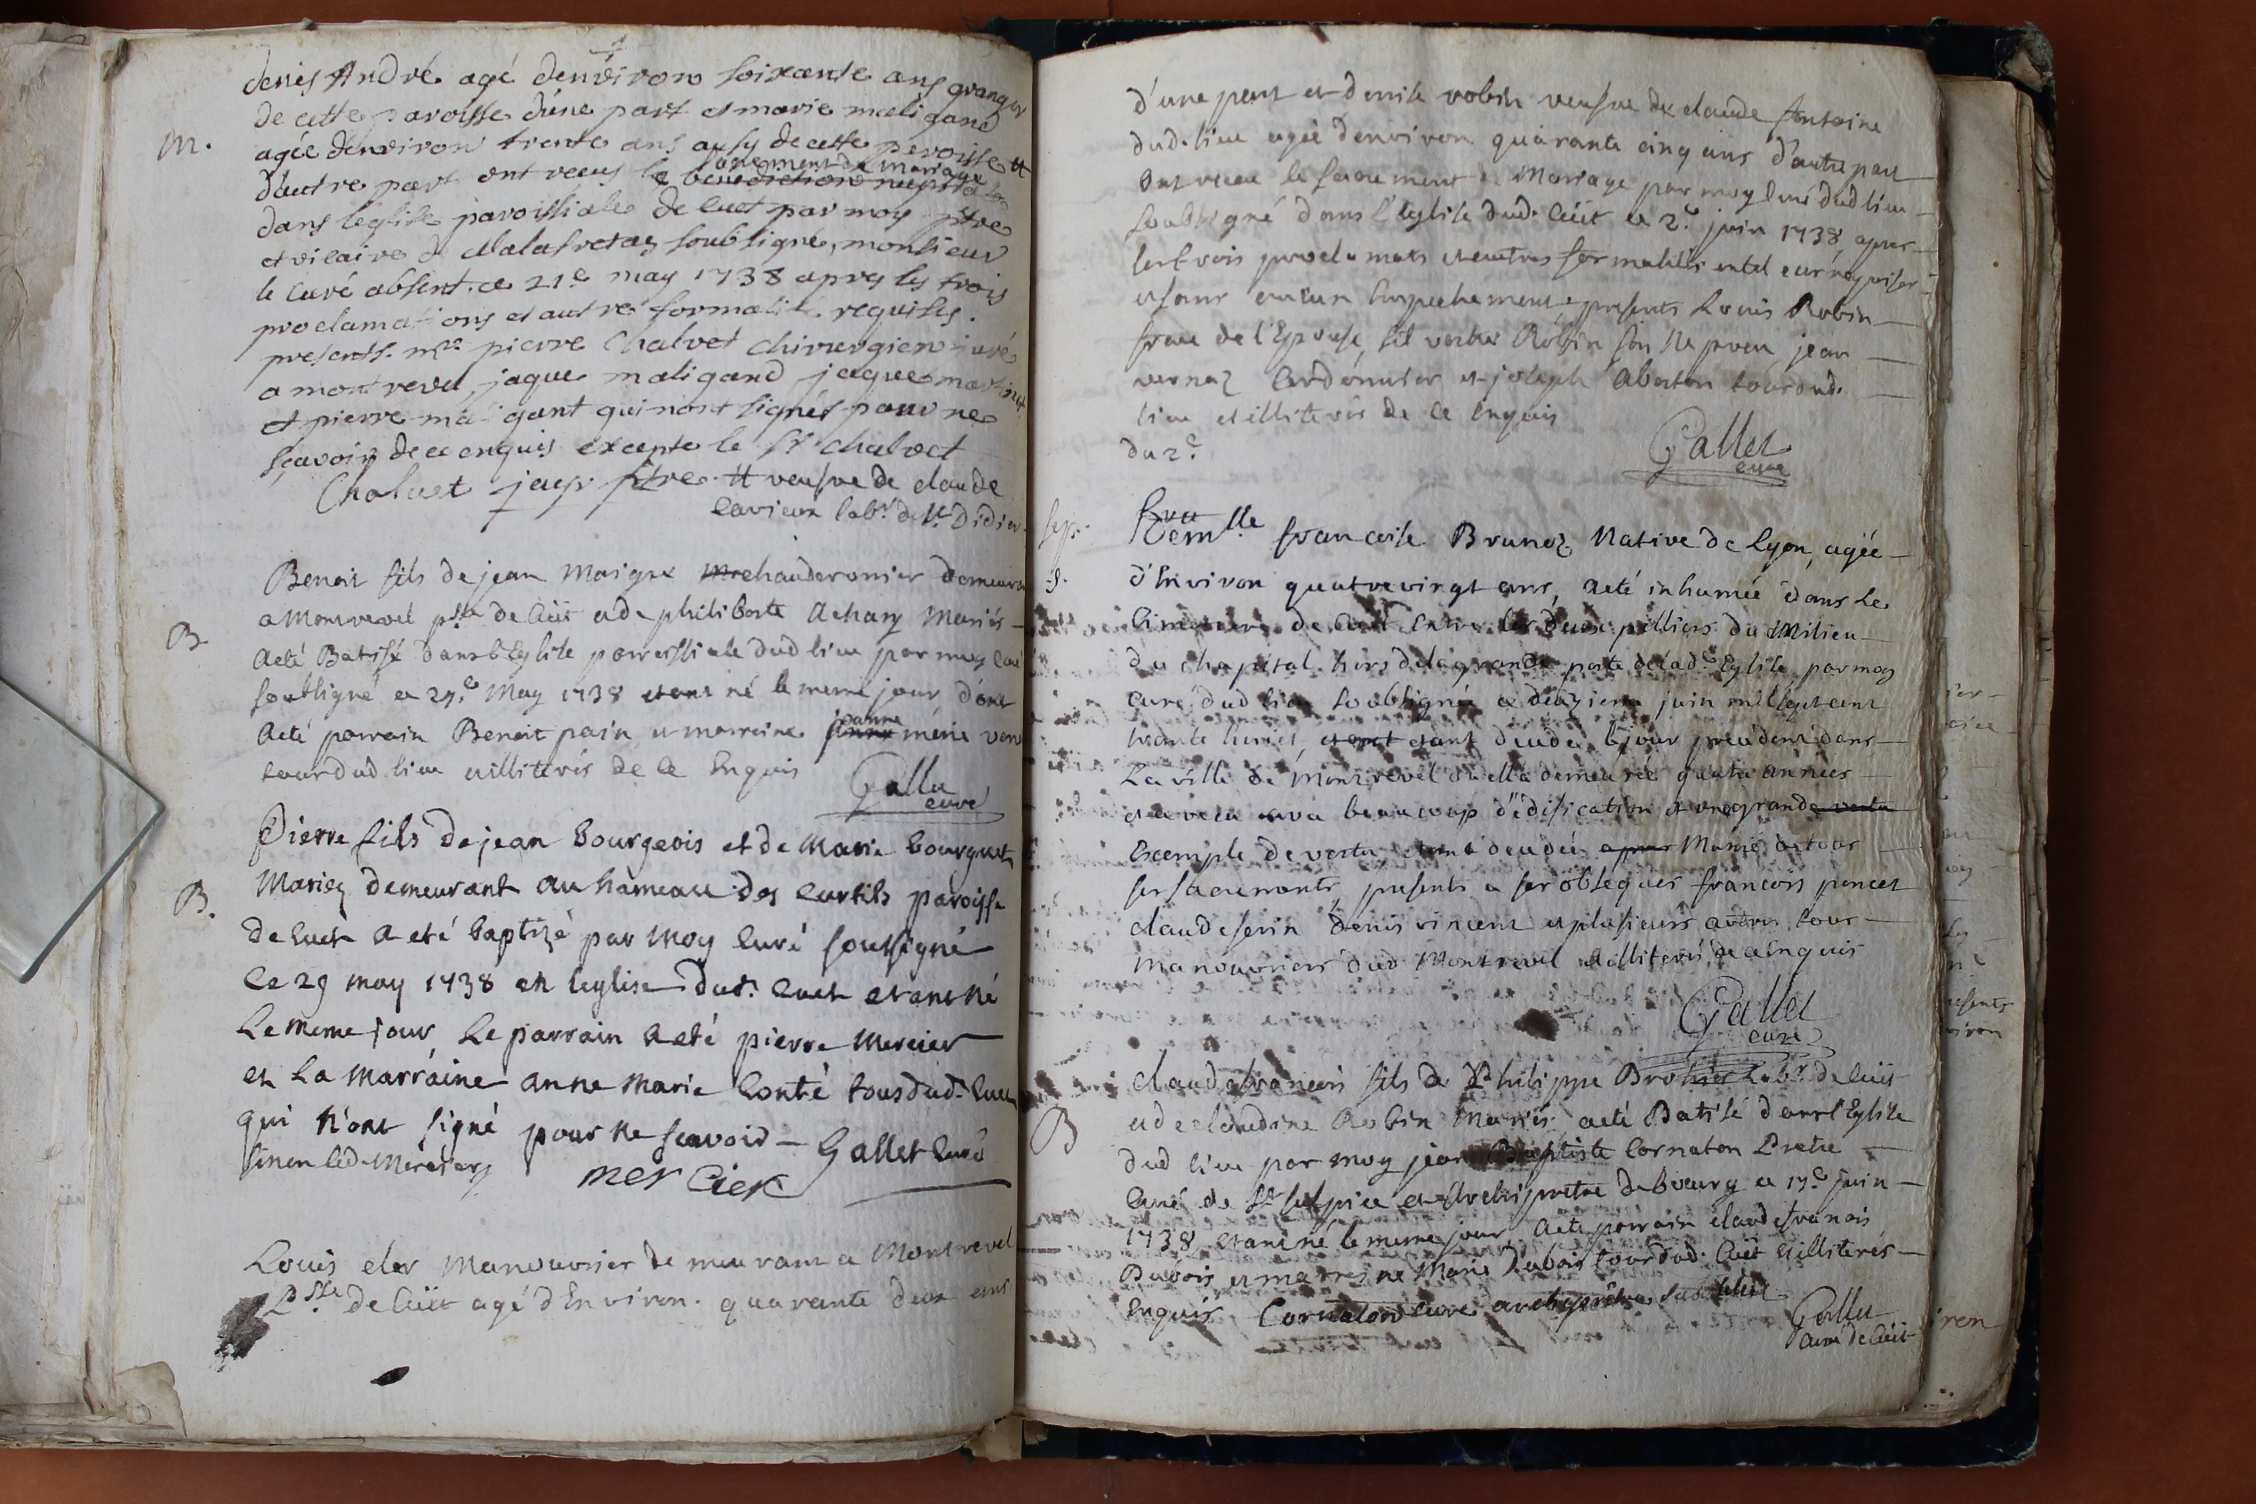 denis André agé denviron soixante ans granger
de cette paroisse d'une part et marie maligand
M.
agée denviron trente ans aussy de cette paroisse #
sacrement de mariage
d'autre part ont reçus le benediction nuptiale
dans leglise paroissiale de Cuet par moy ptre
et vicaire de Malafretaz soubsigné, monsieur
le curé absent. ce 21e may 1738 apres les trois
proclamations et autre formalité requises.
presents. mre pierre Chalvet chirurgien juré
a montrevel, jaque maligand jaque martinet
et pierre maligant qui n'ont signés pour ne
sçavoir de ce enquis excepte le Sr chalvet
Chalvet ptre # veufve de claude
cavieux labr de st Didier
Benoit fils de jean Maigre chauderonier demeurant
a Montrevel psse de Cüet et de philiberte Achary Mariés
B.
a eté Batisé dans l'Eglise paroissiale dud lieu par moy curé
soubsigné ce 29e May 1738 etant né le meme jour dont
a eté parrain Benoit pain et marraine jeanne
tous dud lieu et illiterés de ce Enquis
Gallet
curé
Pierre fils de jean bourgeois et de Marie bourguet
Mariez demeurant au hameau des curtils paroisse
B.
de Cuet a eté baptizé par Moy Curé soussigné
le 29 may 1738 en leglise dud. Cuet etant né
Le meme jour Le parrain a eté pierre Mercier
et La Marraine anne Marie Conté tous dud. Cuet
qui n'ont signé pour ne scavoir — Gallet Curé
sinon led. Mercier
mer cier
Louis Manouvrier demeurant a Montrevel
Psse de Cüet agé d'Environ quarante deux ans
d'une part et denise robin veufve de claude Antoine
dud. lieu agée denviron quarante cinq ans d'autre part
ont recu le sacrement de Mariage par moy Curé dud lieu
soubsigné dans l'Eglise dud. Cüet ce 2e juin 1738 apres
les trois proclamats et autres formalités en tel cas requises
et sans aucun Empechement, presents Louis Robin
frere de l'Epouse, Robin son Nepveu jean
vernaz Cordonnier et joseph Abaton tous dud.
lieu et illiterés de ce Enquis
du 2e
Gallet
curé
Demlle francoise Brunoz Native de Lyon, agée
d'Environ quatrevingt ans, a eté inhumée dans le
Cimetiere de Cuet Entre les deux pilliers du Milieu
du chapital hors de la grande porte de lad. Eglise par moy
curé dud lieu soubsigné ce deuxieme juin mil sept cent
trente huict, etant decedée le jour precedent dans
La ville de Montrevel ou elle a demeurée quatre années
et a vecu avec beaucoup d'édification et une grande vertu
Exemple de vertu, etant decedée apres Munie de tous
ses sacrements, presents a ses obseques francois poncet
claude serin denis vincent et plusieurs autres tous
manouvriers dud Montrevel et illiterés de ce Enquis
Gallet
curé
claude francois fils de Philippe Brohier Labr de Cüet
B
et de claudine Robin Mariés a eté Batisé dans l'Eglise
dud lieu par moy jean Baptiste Cornaton Pretre
Curé de St sulpice et Archipretre de bourg ce 17e juin
1738 etant né le meme jour, a eté parrain claude francois
Dubois et marraine Marie Dubois tous dud. Cüet et illiterés
Enquis Cornaton curé archipretre
Gallet
curé de Cüet